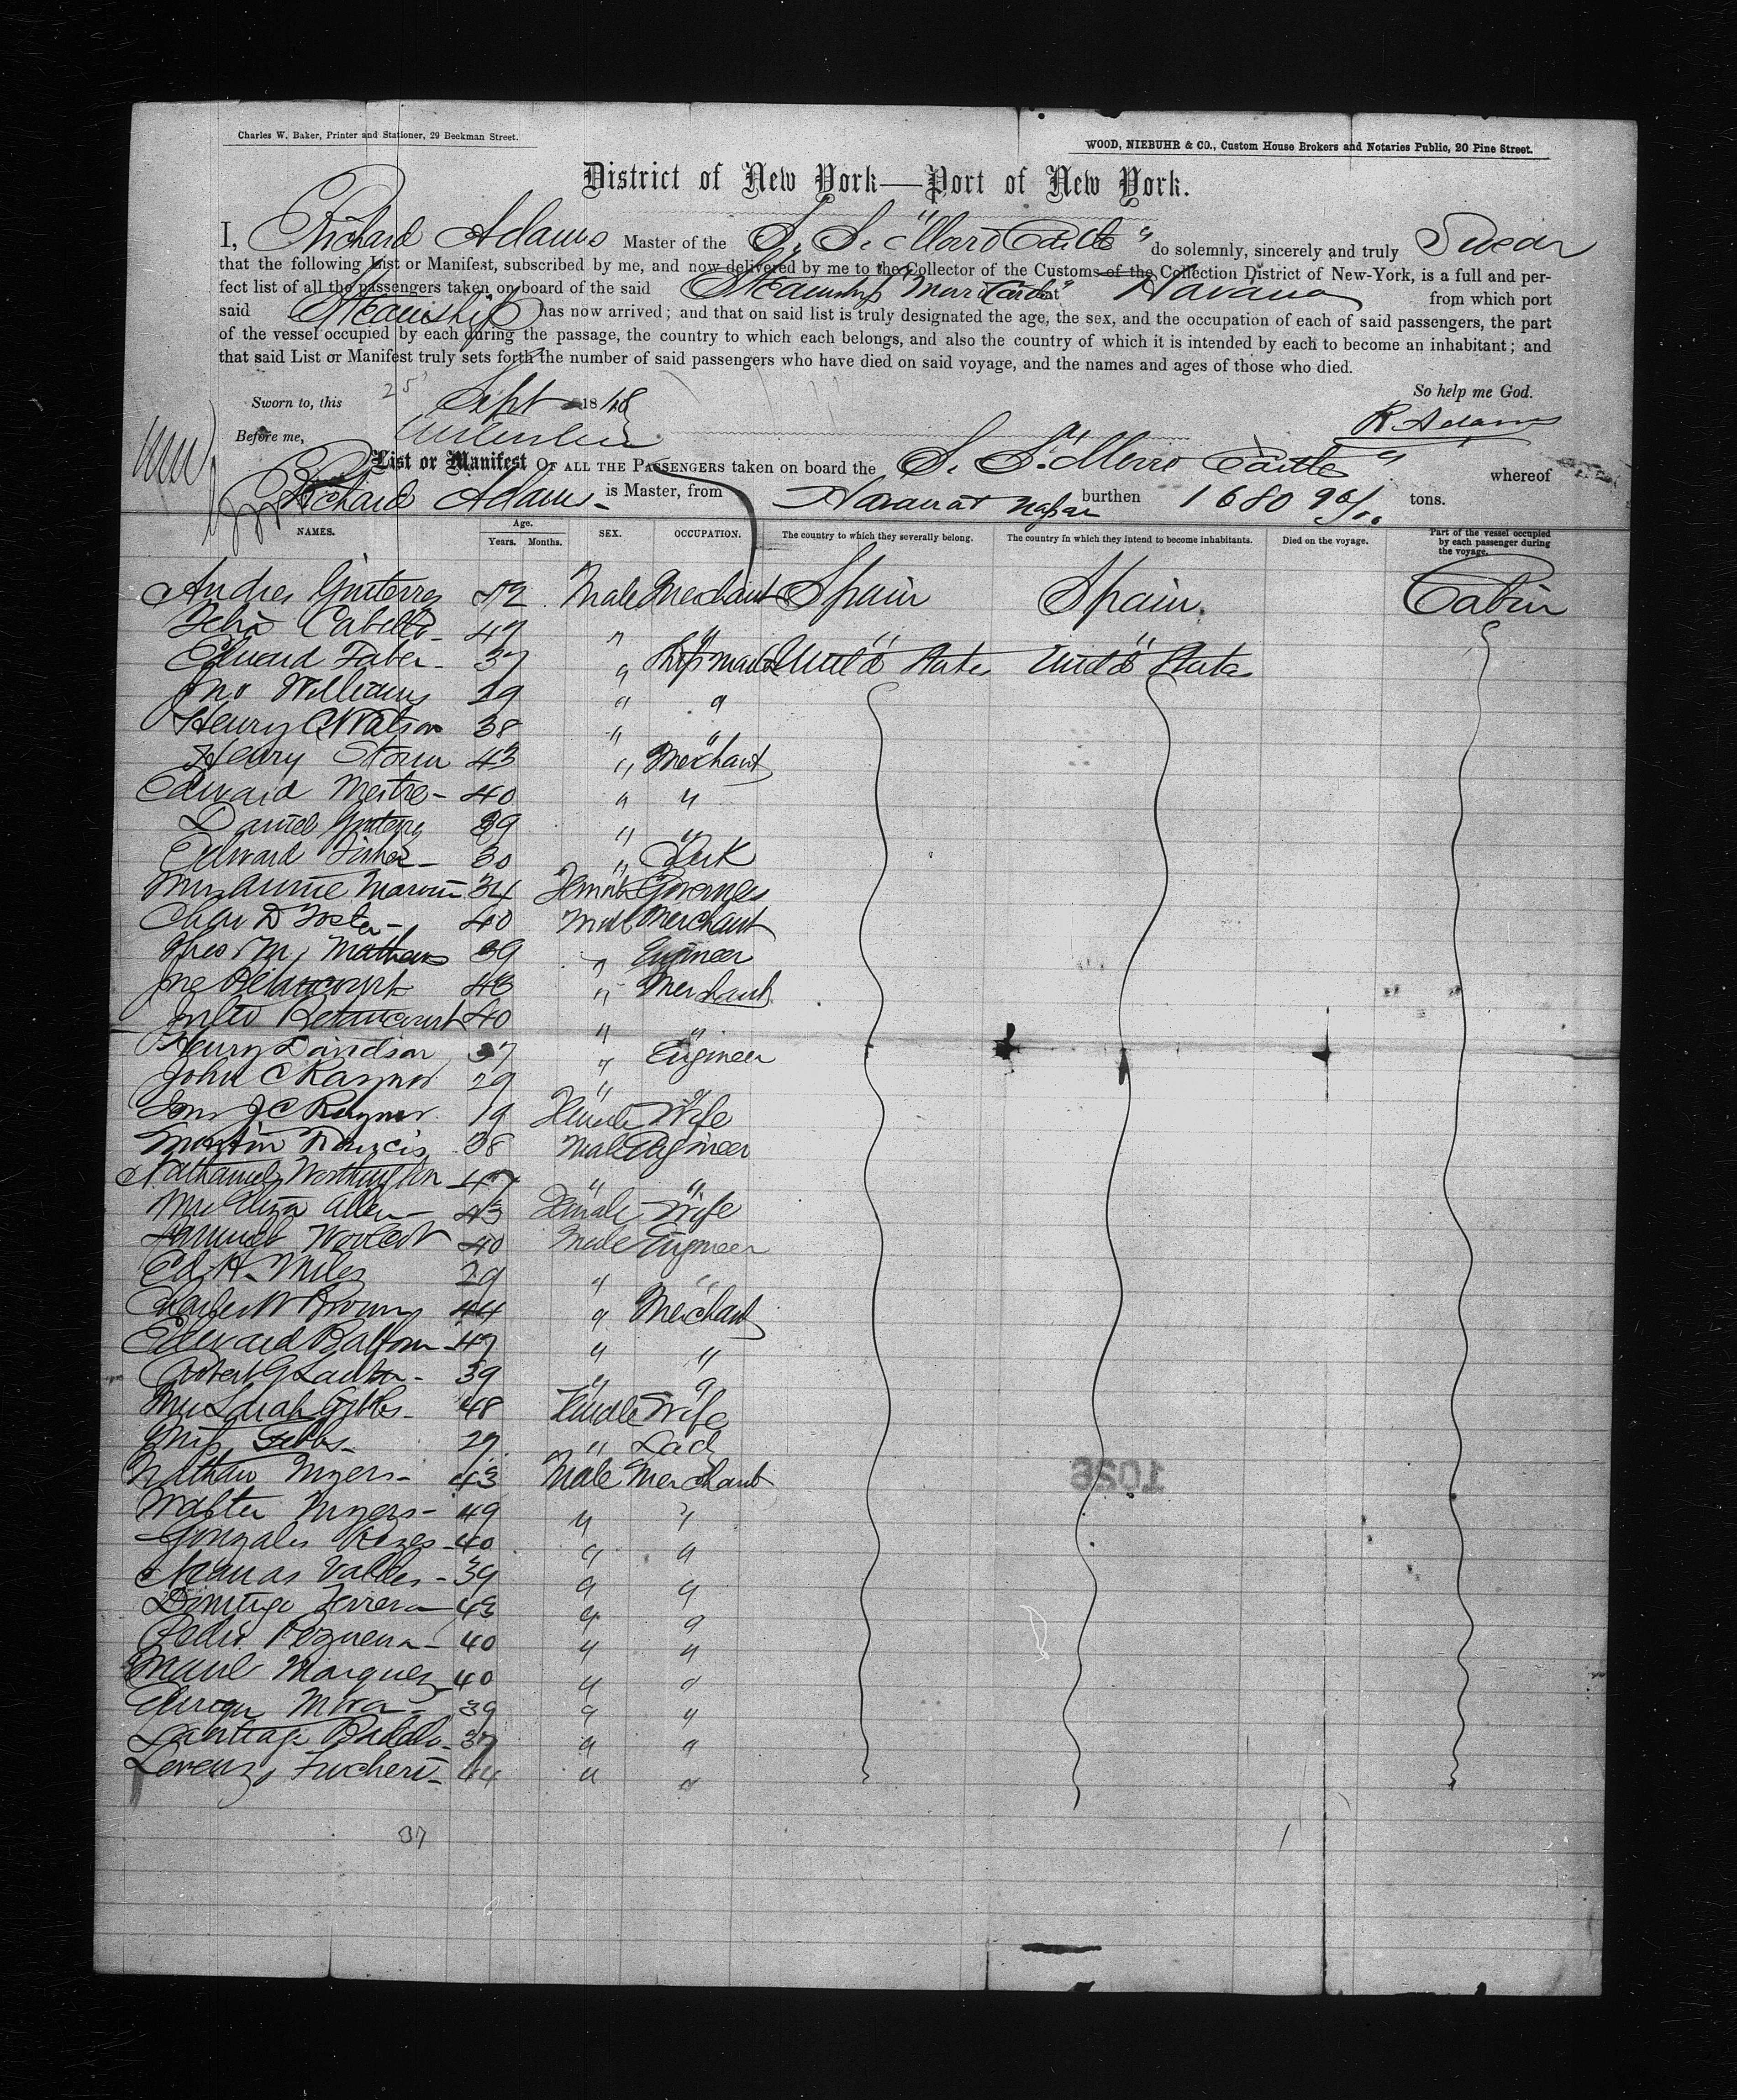 Charles W. Baker, Printer and Stationer, 29 Beekman Street.
WOOD, NIEBUHR & CO., Custom House Brokers and Notaries Public, 20 Pine Street.
District of New York—Port of New York.
I, Richard Adams Master of the S. S. "Morro Castle" do solemnly, sincerely and truly Swear
that the following List or Manifest, subscribed by me, and now delivered by me to the Collector of the Customs of the Collection District of New-York, is a full and per-
fect list of all the passengers taken on board of the said Steamship Morro Castle at Havana from which port
said Steamship has now arrived; and that on said list is truly designated the age, the sex, and the occupation of each of said passengers, the part
of the vessel occupied by each during the passage, the country to which each belongs, and also the country of which it is intended by each to become an inhabitant; and
that said List or Manifest truly sets forth the number of said passengers who have died on said voyage, and the names and ages of those who died.
So help me God.
Sworn to, this 25 Sept 18
R. Adams
Before me,
List or Manifest OF ALL THE PASSENGERS taken on board the S. S. "Morro Castle" whereof
Richard Adams is Master, from Havana burthen 1680 96/100 tons.
NAMES. Age. Years. Months. SEX. OCCUPATION. The country to which they severally belong. The country in which they intend to become inhabitants. Died on the voyage. Part of the vessel occupied by each passenger during the voyage.
Andres Guiterrez 52 Male Merchant Spain Spain Cabin
Felix Cabello 47 " " " "
Edward Faber 37 " United States United States
Jno Williams 29 " "
Henry C Watson 38 " "
Henry Storm 43 " Merchant
Edward Mestre 40 " "
Daniel 39 " "
Edward Fisher 30 " Clerk
Mrs Annie 34 Female Governess
Chas D Foster 40 Male Merchant
Theo M. Mathews 39 " Engineer
Jose Betancourt 43 " Merchant
Julio Betancourt 40 " "
Henry Davidson 37 " Engineer
John C Raynor 29 " "
Mrs J C Raynor 19 Female Wife
Martin Francis 38 Male Engineer
Nathaniel Worthington 47 " "
Mrs Eliza Allen 43 Female Wife
Samuel 40 Male Engineer
Ed. H. Miles 29 " "
Charles W Brown 44 " Merchant
Edward Balfour 47 " "
Robert G 39 " "
Mrs Sarah Gibbs 48 Female Wife
Miss Gibbs 27 " Lady
Nathan Myers 43 Male Merchant
Walter Myers 49 " "
Gonzales Reyes 40 " "
Valdes 39 " "
Domingo Ferrera 43 " "
Pedro 40 " "
Marquez 40 " "
Enrique Mora 39 " "
Santiago 37 " "
Lorenzo 44 " "
37
1026